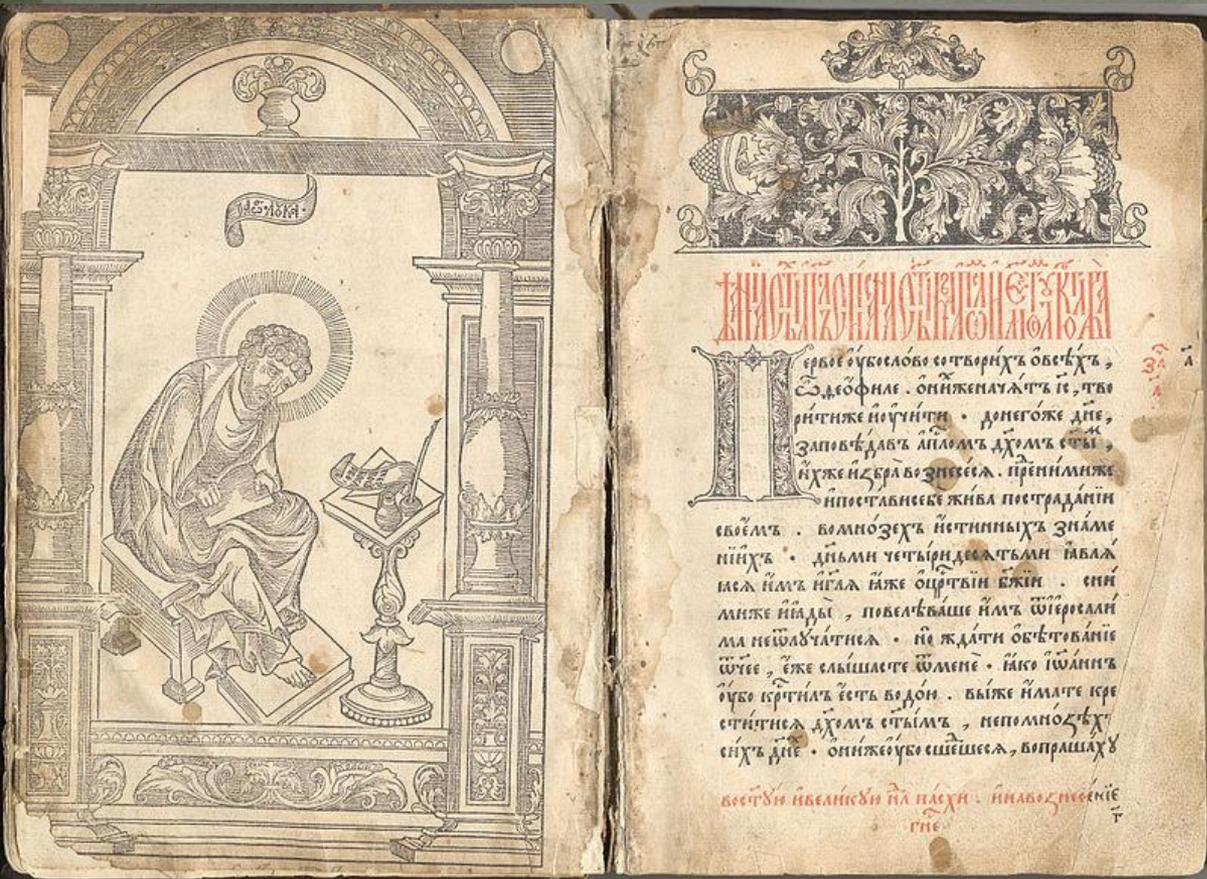 Первое оубо слово сотворихъ ѡвсѣхъ ,
ѽ Ѳеѡфиле . ѡниже начатъ і҃с , тво
рити же и оучити · до него же дн҃е ,
заповѣдавъ ап҃лом дх҃омъ ст҃ым ,
ихже избра вознесеся . пред ними же
и постави себе жива по страданїи
своемъ . во мнозехъ истинныхъ знаме
нїихъ · дн҃ьми четыридесятьми ꙗвлѧ
ꙗсѧ имъ и гл҃ѧ ꙗже о цр҃твїи бж҃їи . сни
миже и ꙗды , повелѣваше имъ ѿ іеросали
ма не ѿлучатисѧ · но ждати обѣтованїе
ѿчее , еже слышасте ѿ мене · ꙗко іѡаннъ
оубо крⷭ҇тилъ есть водою . вы же имате кре
ститисѧ дх҃омъ ст҃ымъ , не по мнозѣхъ
сихъ дн҃е · ѡниже оубо сшедшесѧ , вопрашаху
во ст҃ую и великую нл҃ пасхи · и на вознесенїе
гн҃е